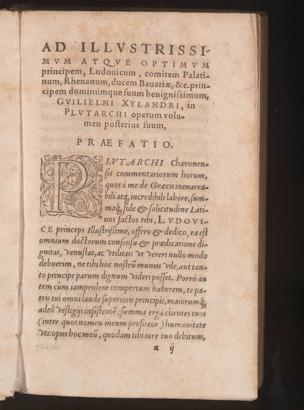 AD ILLVSTRISSI-
MVM ATQVE OPTIMVM
principem, Ludouicum, comitem Palati-
num, Rhenanum, ducem Bauariæ, &c. prin-
cipem dominumque suum benignissimum,
GVILIELMI XYLANDRI, in
PLVTARCHI operum volu-
men posterius suum,
PRÆFATIO.
PLVTARCHI Chæronen-
sis commentariorum horum,
quos à me de Græcis inenarra-
bili atq; incredibili labore, sum-
maq; fide & solicitudine Lati-
nos factos tibi, LVDOVI-
CE princeps Illustrissime, offero & dedico, ea est
omnium doctorum consensu & prædicatione di-
gnitas, venustas, ac vtilitas: vt vereri nullo modo
debuerim, ne tibi hoc nostrũ munus vile, aut tan-
to principe parum dignum videri posset. Porrò au
tem cùm iampridem compertum haberem, te pa-
tris tui omni laude superioris principis, maiorumq;
adeò vestigijs insistentẽ, summa erga clientes tuos
(inter quos nomen meum profiteor) humanitate
vti: opus hoc meũ, quodam tibi iure tuo debitum,
a ij